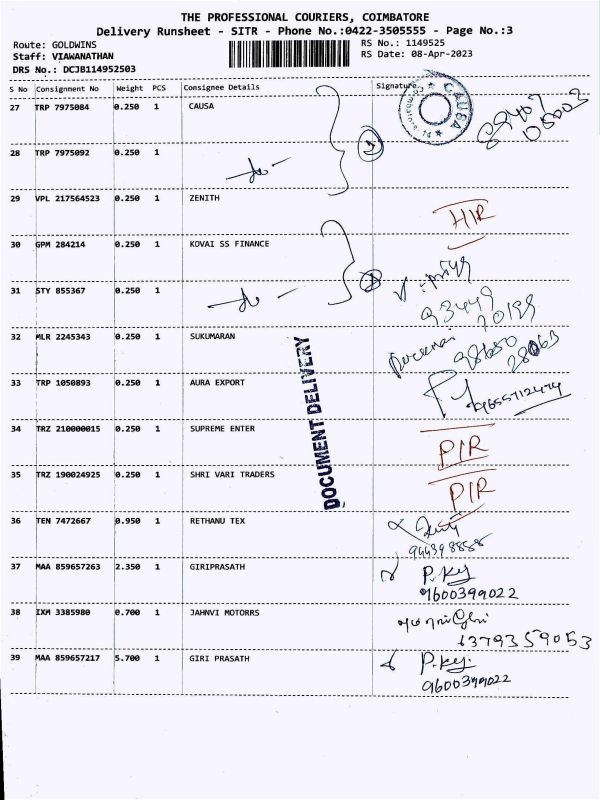 THE PROFESSIONAL COURIERS, COIMBATORE
Delivery Runsheet - SITR - Phone No.:0422-3505555 - Page No.:3
Route: GOLDWINS
RS No.: 1149525
Staff: VIAWANATHAN
RS Date: 08-Apr-2023
DRS No.: DCJB114952503
S No Consignment No Weight PCS Consignee Details Signature
27 TRP 7975084 0.250 1 CAUSA
CAUSA
28 TRP 7975092 0.250 1
29 VPL 217564523 0.250 1 ZENITH
30 GPM 284214 0.250 1 KOVAI SS FINANCE
31 STY 855367 0.250 1
93449
70199
32 MLR 2245343 0.250 1 SUKUMARAN
98650
28063
33 TRP 1050893 0.250 1 AURA EXPORT
9655712474
DOCUMENT DELIVERY
34 TRZ 210000015 0.250 1 SUPREME ENTER
PIR
35 TRZ 190024925 0.250 1 SHRI VARI TRADERS
PIR
36 TEN 7472667 0.950 1 RETHANU TEX
37 MAA 859657263 2.350 1 GIRIPRASATH
P.Ky
9600399022
38 IXM 3385980 0.700 1 JAHNVI MOTORRS
6379359053
39 MAA 859657217 5.700 1 GIRI PRASATH
P.Ky.
9600399022